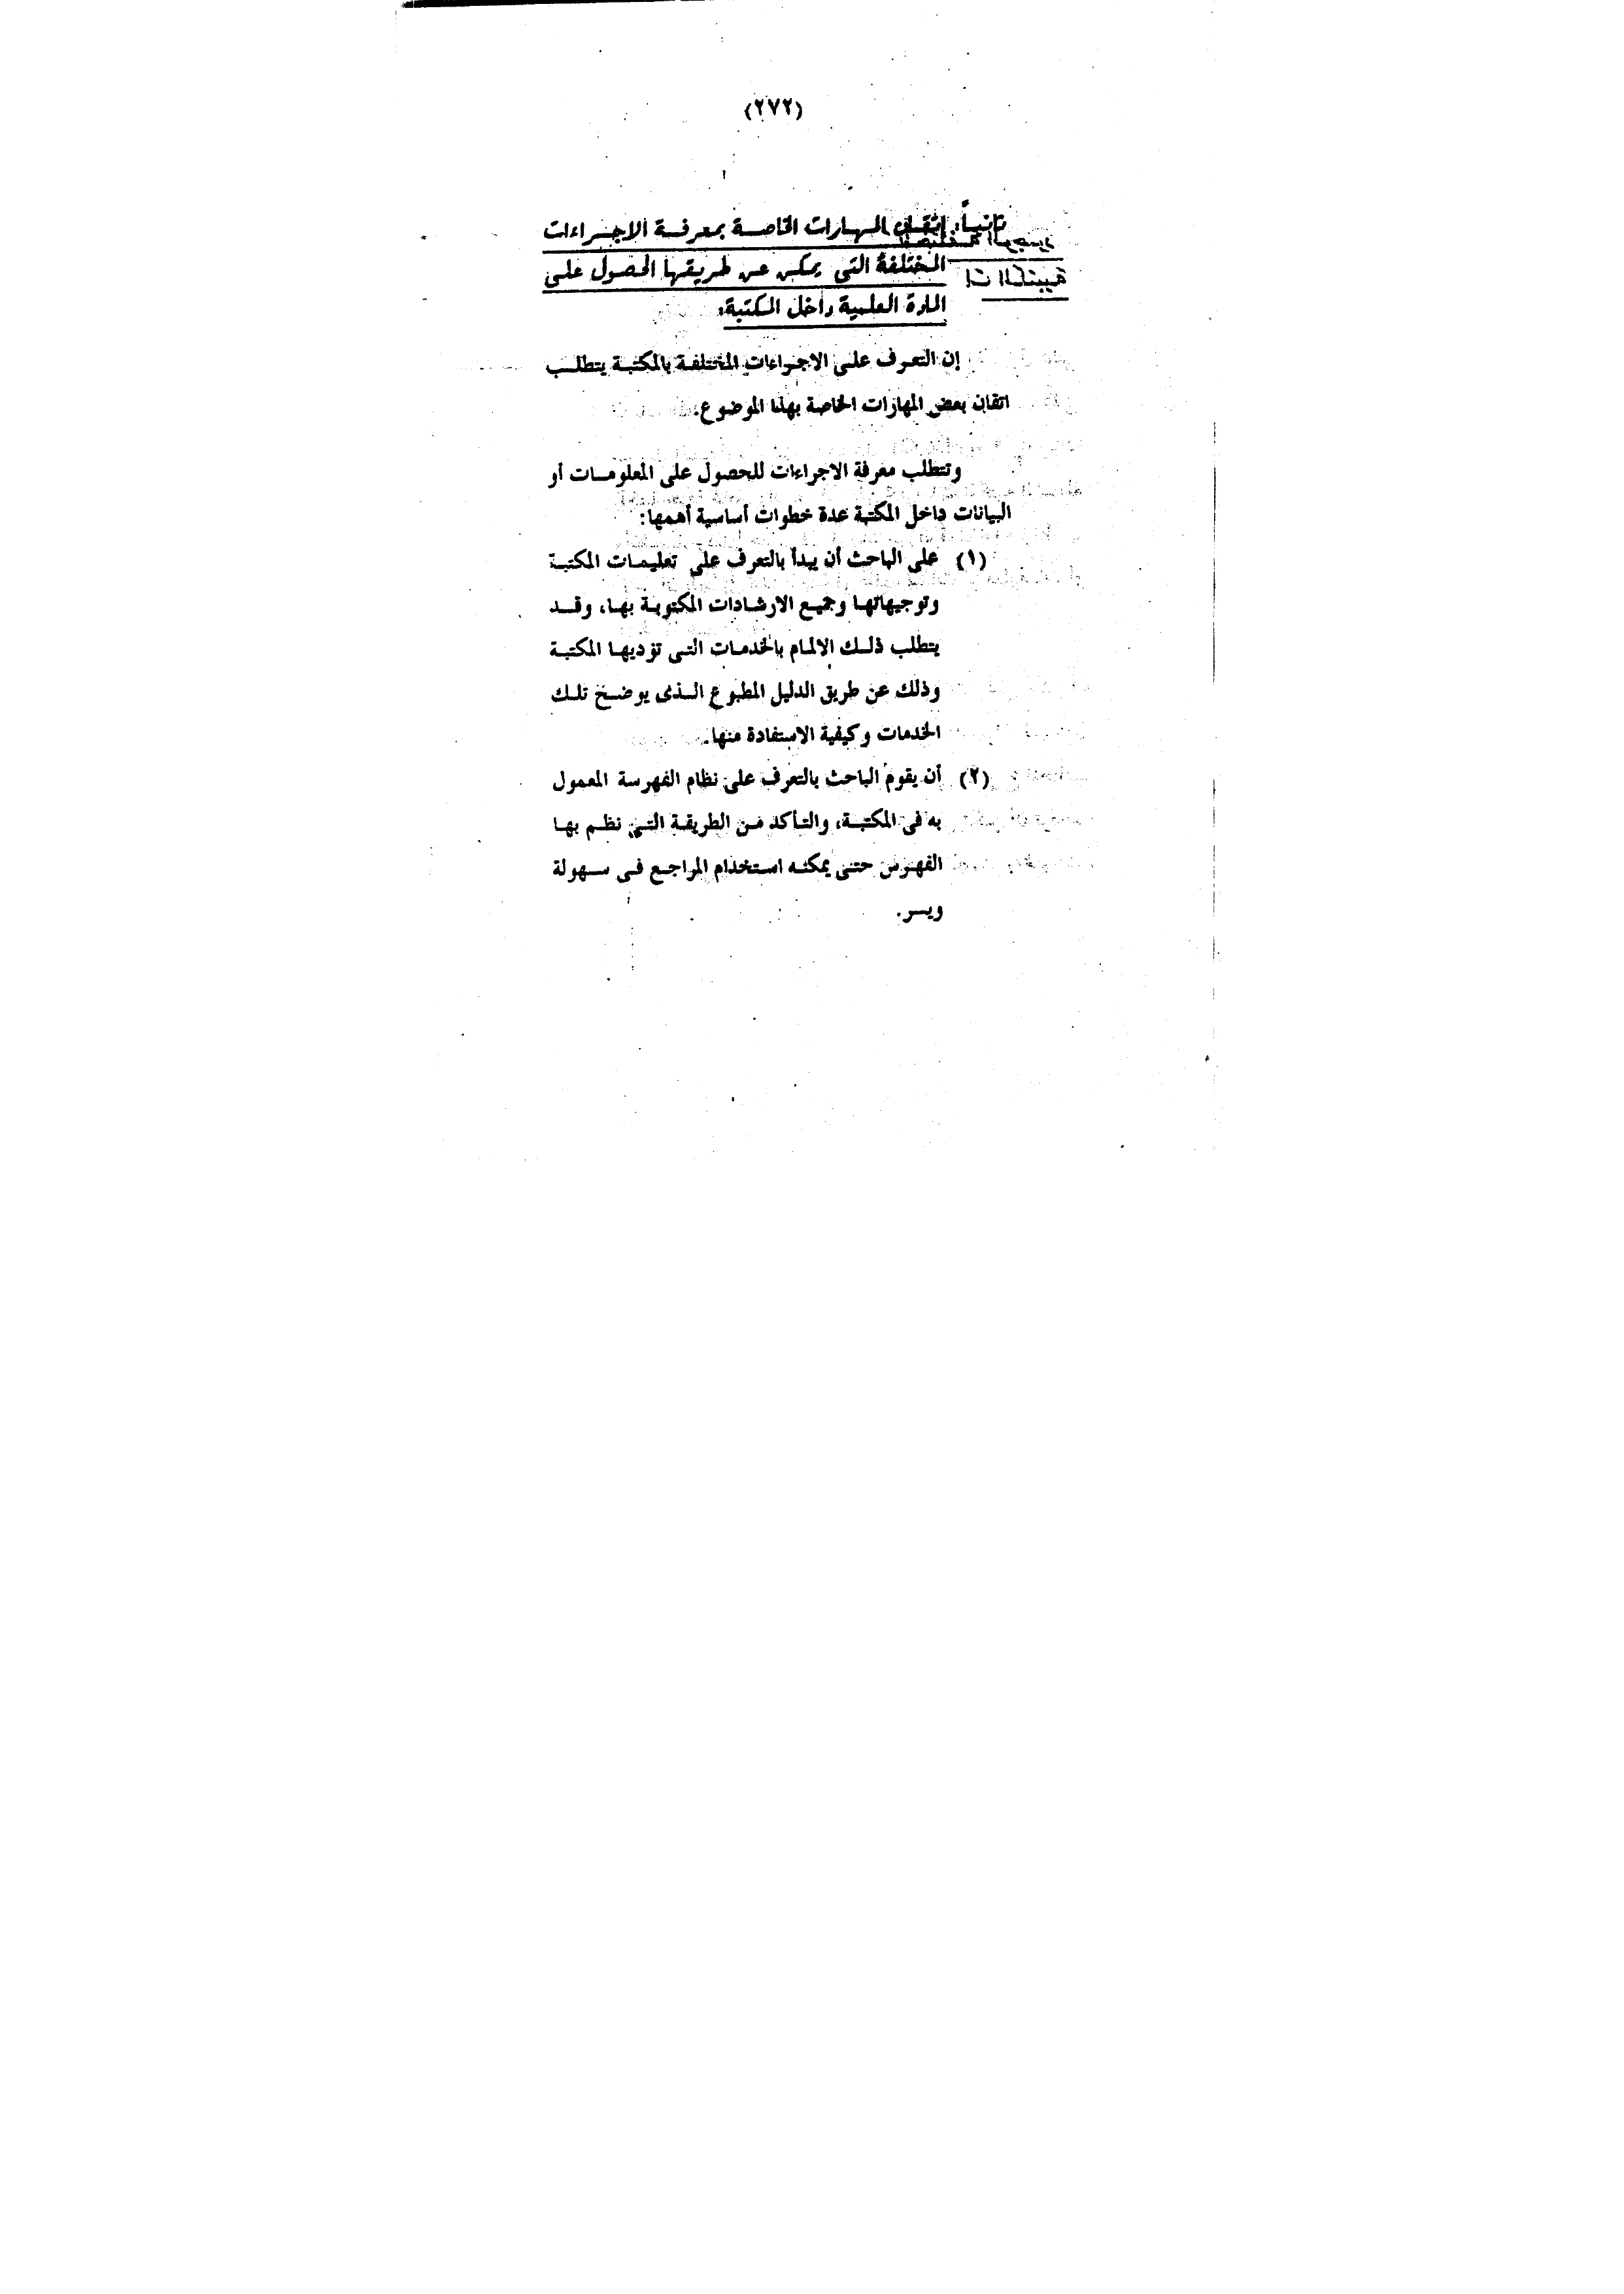 (٢٧٢)
ثانياً: إتقان المهارات الخاصة بمعرفة الاجراءات
المختلفة التى يمكن عن طريقها الحصول على
المادة العلمية داخل المكتبة:
إن التعرف على الاجراءات المختلفة بالمكتبة يتطلب
اتقان بعض المهارات الخاصة بهذا الموضوع.
وتتطلب معرفة الاجراءات للحصول على المعلومات أو
البيانات داخل المكتبة عدة خطوات أساسية أهمها:
(١) على الباحث أن يبدأ بالتعرف على تعليمات المكتبة
وتوجيهاتها وجميع الارشادات المكتوبة بها، وقد
يتطلب ذلك الالمام بالخدمات التى تؤديها المكتبة
وذلك عن طريق الدليل المطبوع الذى يوضح تلك
الخدمات وكيفية الاستفادة منها.
(٢) أن يقوم الباحث بالتعرف على نظام الفهرسة المعمول
به فى المكتبة، والتأكد من الطريقة التى نظم بها
الفهرس حتى يمكنه استخدام المراجع فى سهولة
ويسر.